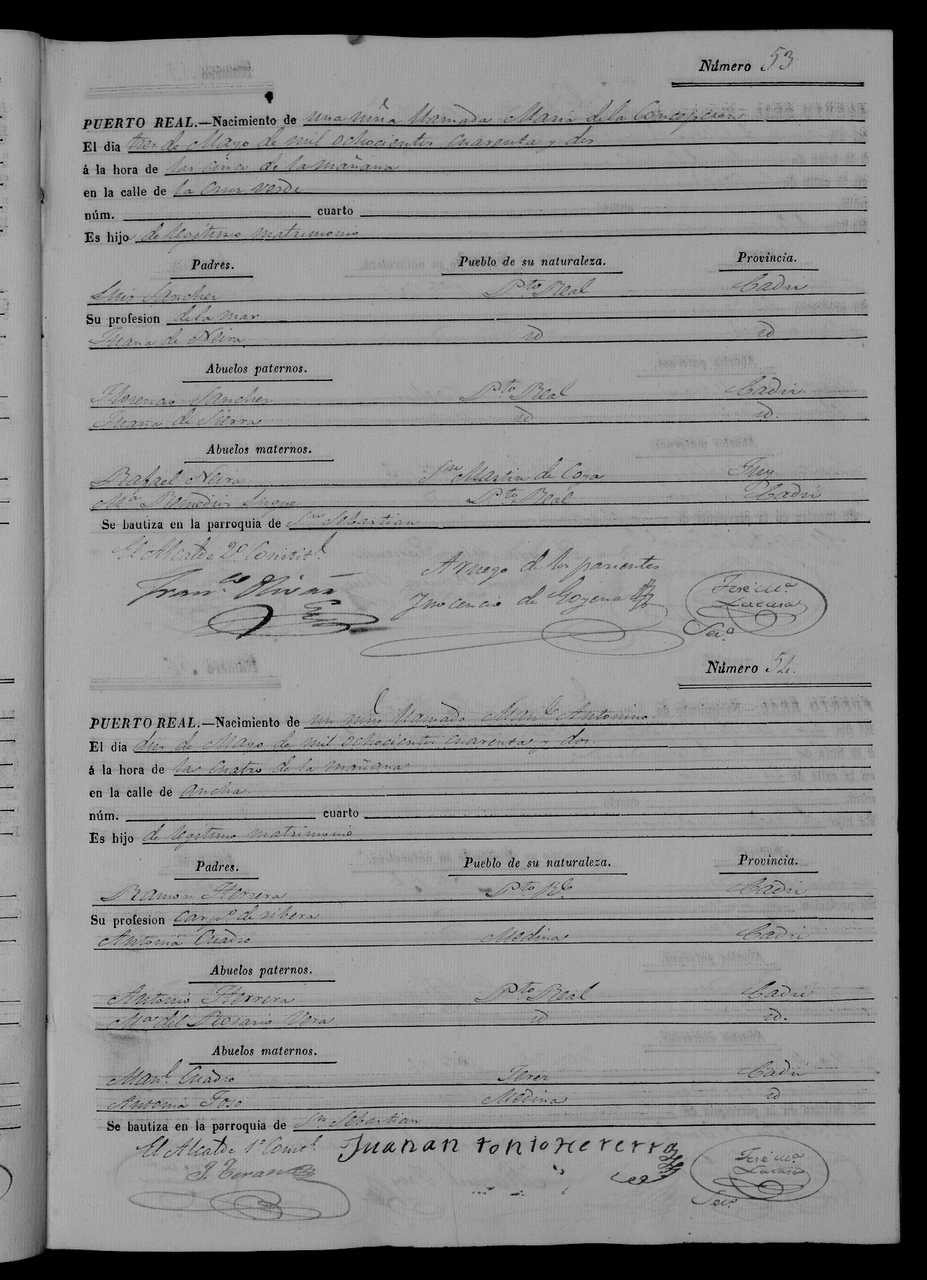 Número 53
PUERTO REAL.—Nacimiento de una niña llamada Maria de la Concepcion
El dia tres de Mayo de mil ochocientos cuarenta y dos
á la hora de las cinco de la mañana
en la calle de la Cruz verde
núm. cuarto
Es hijo de legitimo matrimonio
Padres. Pueblo de su naturaleza. Provincia.
Luis Sanchez Pto Real Cadiz
Su profesion de la mar
Juana de Neira id id
Abuelos paternos.
Florencio Sanchez Pto Real Cadiz
Juana de Sierra id id.
Abuelos maternos.
Rafael Neira Sn Martin de
Ma Remedios Pto Real Cadiz
Se bautiza en la parroquia de Sn Sebastian
El Alcalde 2º Constl.
Franco Olivan
A ruego de los parientes
Inocencio de Goyena
José Ma.
Lacasa
Sereo.
Número 54.
PUERTO REAL.—Nacimiento de un niño llamado Manl. Antonino
El dia dos de Mayo de mil ochocientos cuarenta y dos
á la hora de las cuatro de la mañana
en la calle de Ancha
núm. cuarto
Es hijo de legitimo matrimonio
Padres. Pueblo de su naturaleza. Provincia.
Ramon Herrera Pto Rl. Cadiz
Su profesion carpo. de ribera
Antonia Cuadro Medina Cadiz
Abuelos paternos.
Antonio Herrera Pto Real Cadiz
Ma del Rosario Vera id id.
Abuelos maternos.
Manl. Cuadro Jerez Cadiz
Antonia Toso Medina id
Se bautiza en la parroquia de Sn Sebastian
El Alcalde 1º Constl.
J. Teran
Juanan tonioHererra
José Ma.
Lacasa